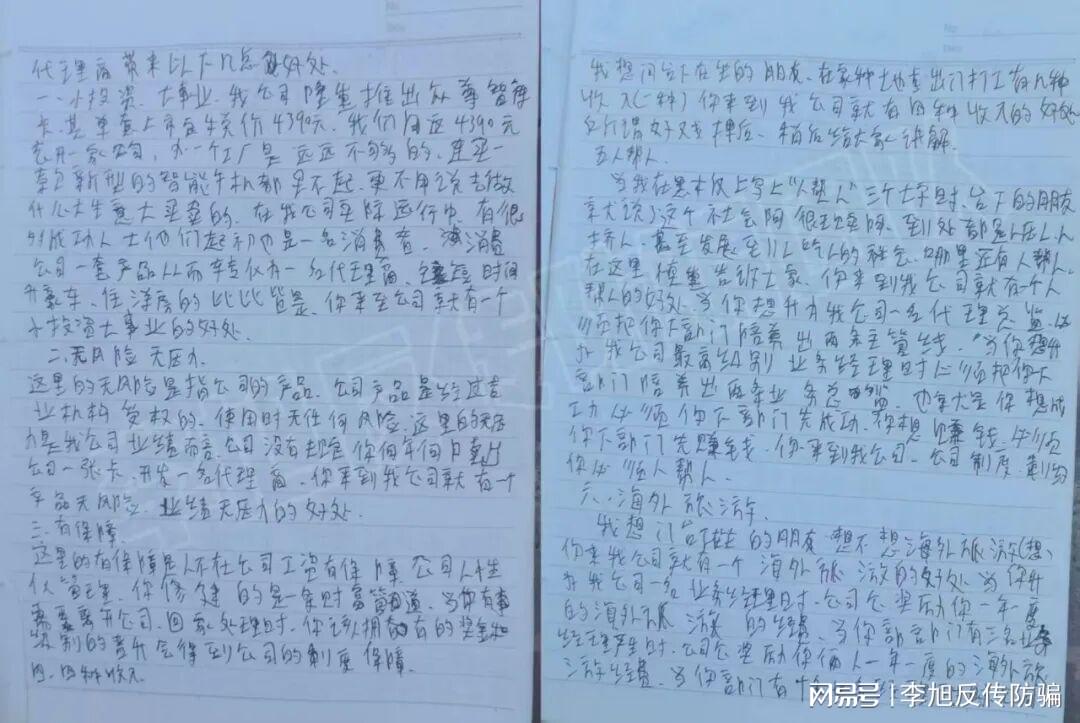 代理商带来以下几点好处.
一、小投资、大事业.我公司隆重推出众尊智
卡.其单套上市定价4390元.我们用这4390元
去开一家,办一个工厂是远远不够的,连买一
新型的智能手机都买不起.更不用说去做
什么大生意大买卖的.在我公司实际运行中,有很
多成功人士他们起初也是一名消费者,消费
公司一套产品从而转化为一名代理商,短时间
开豪车、住洋房的比比皆是.你来到公司就有一个
小投资大事业的好处.
二.无风险 无压力
这里的无风险是指公司的产品.公司产品是经过专
业机构授权的.使用时无任何风险.这里的无压
力是我公司业绩而言.公司没有规定你何年何月卖出
公司一张卡.开发一名代理商.你来到我公司就有一个
产品无风险.业绩无压力的好处.
三.有保障
这里的有保障是人不在公司工资有保障.公司人性
化管理.你修建的是一条财富管道.当你有事
需要离开公司.回家处理时.你应该拥有的奖金和
级别的晋升会得到公司的制度保障.
四.四种收入.
我想问台下在坐的朋友.在家种地或出门打工有几种
收入(一种)你来到我公司就有四种收入的好处
所谓好戏押后、稍后给大家讲解.
五人帮人.
当我在黑板上写上“人帮人”三个大字时.台下的朋友
就说了这个社会啊很现实啊.到处都是人压人人
挤人.甚至发展到人吃人的社会.哪里还有人帮人.
在这里,慎重告诉大家.你来到我公司就有一个人
帮人的好处.当你想升为我公司一名代理员.必
须把你下部门培养出两条主管线.当你想升
为我公司最高级别业务经理时必须把你下
部门培养出两条业务.也就是你想成
功必须你下部门先成功.你想赚钱.必须
你下部门先赚钱.你来到我公司.公司制度.制约
你必须人帮人.
六.海外旅游.
我想问台下在坐的朋友想不想海外旅游(想)
你来我公司就有一个海外旅游的好处.当你升
为我公司一名业务经理时.公司会奖励你一年一度
的海外旅游的经费.当你部门有三名业务
经理产生时.公司会奖励你俩人一年一度的海外旅
游经费.当你部门有十
网易号 李旭反传防骗